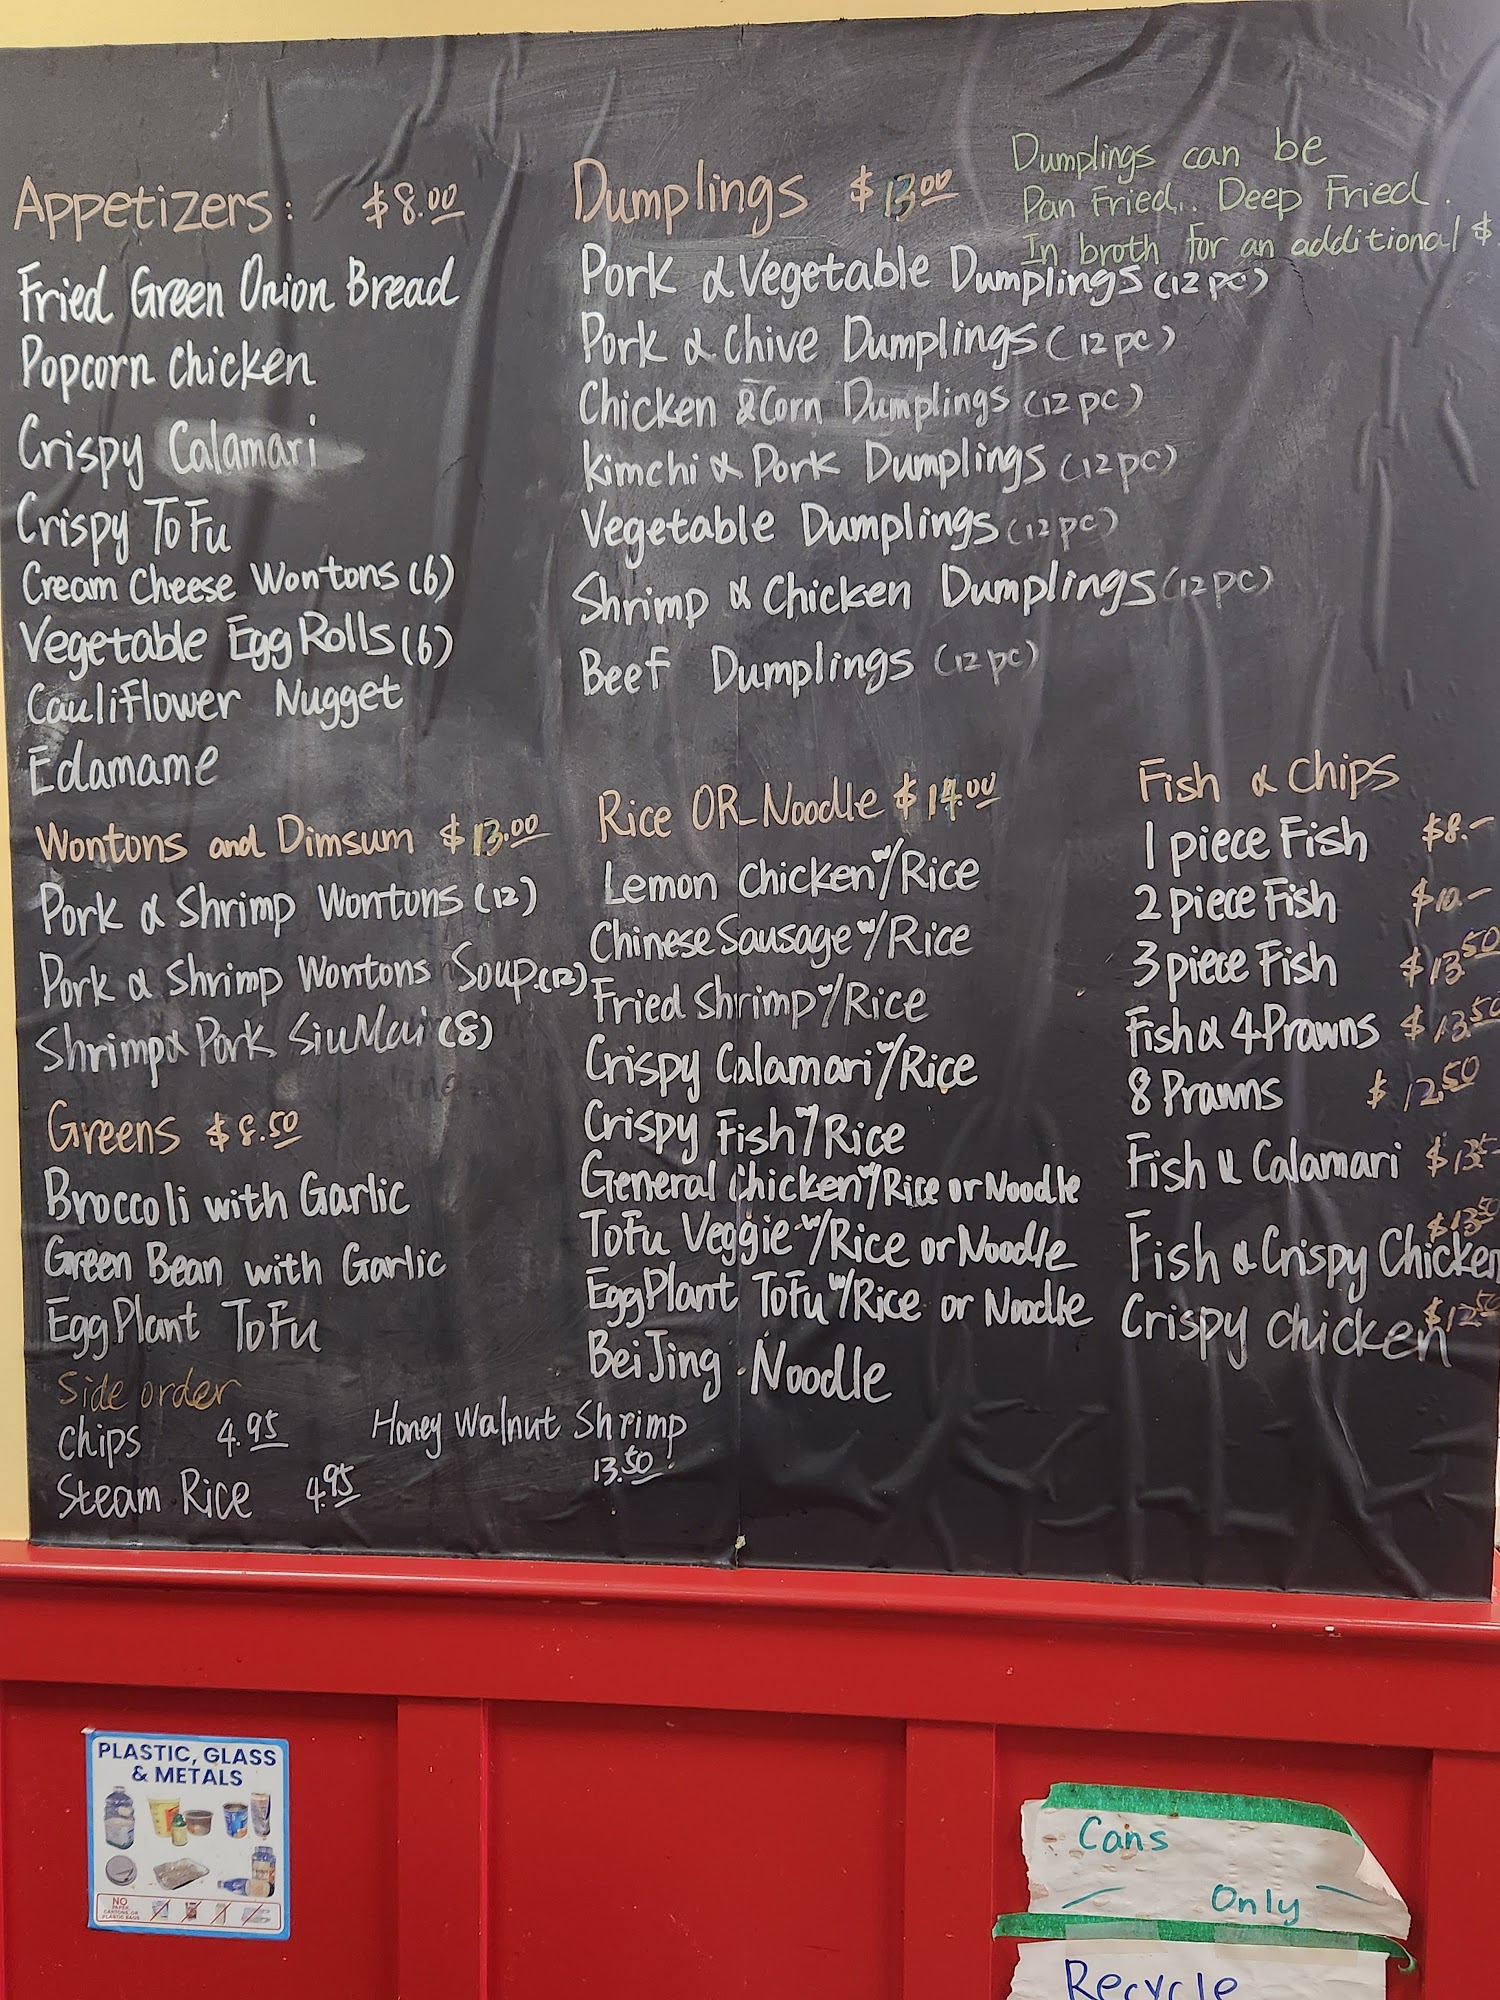 Appetizers: $8.00
Fried Green Onion Bread
Popcorn Chicken
Crispy Calamari
Crispy ToFu
Cream Cheese Wontons (6)
Vegetable Egg Rolls (6)
Cauliflower Nugget
Edamame
Wontons and Dimsum $13.00
Pork & Shrimp Wontons (12)
Pork & Shrimp Wontons Soup (12)
Shrimp & Pork SiuMai (8)
Greens $8.50
Broccoli with Garlic
Green Bean with Garlic
EggPlant ToFu
Side order
Chips 4.95
Steam Rice 4.95
Honey Walnut Shrimp
13.50
Dumplings $13.00
Dumplings can be
Pan Fried.. Deep Fried.
In broth for an additional $
Pork & Vegetable Dumplings (12 pc)
Pork & Chive Dumplings (12 pc)
Chicken & Corn Dumplings (12 pc)
Kimchi & Pork Dumplings (12 pc)
Vegetable Dumplings (12 pc)
Shrimp & Chicken Dumplings (12 pc)
Beef Dumplings (12 pc)
Rice OR Noodle $14.00
Lemon Chicken w/Rice
Chinese Sausage w/Rice
Fried Shrimp w/Rice
Crispy Calamari w/Rice
Crispy Fish w/Rice
General Chicken w/Rice or Noodle
ToFu Veggie w/Rice or Noodle
EggPlant ToFu w/Rice or Noodle
BeiJing Noodle
Fish & Chips
1 piece Fish $8.-
2 piece Fish $10.-
3 piece Fish $13.50
Fish & 4 Prawns $13.50
8 Prawns $12.50
Fish & Calamari
Fish & Crispy Chicken $13.50
Crispy Chicken $12.50
PLASTIC, GLASS
& METALS
NO
Cans
Only
Recycle